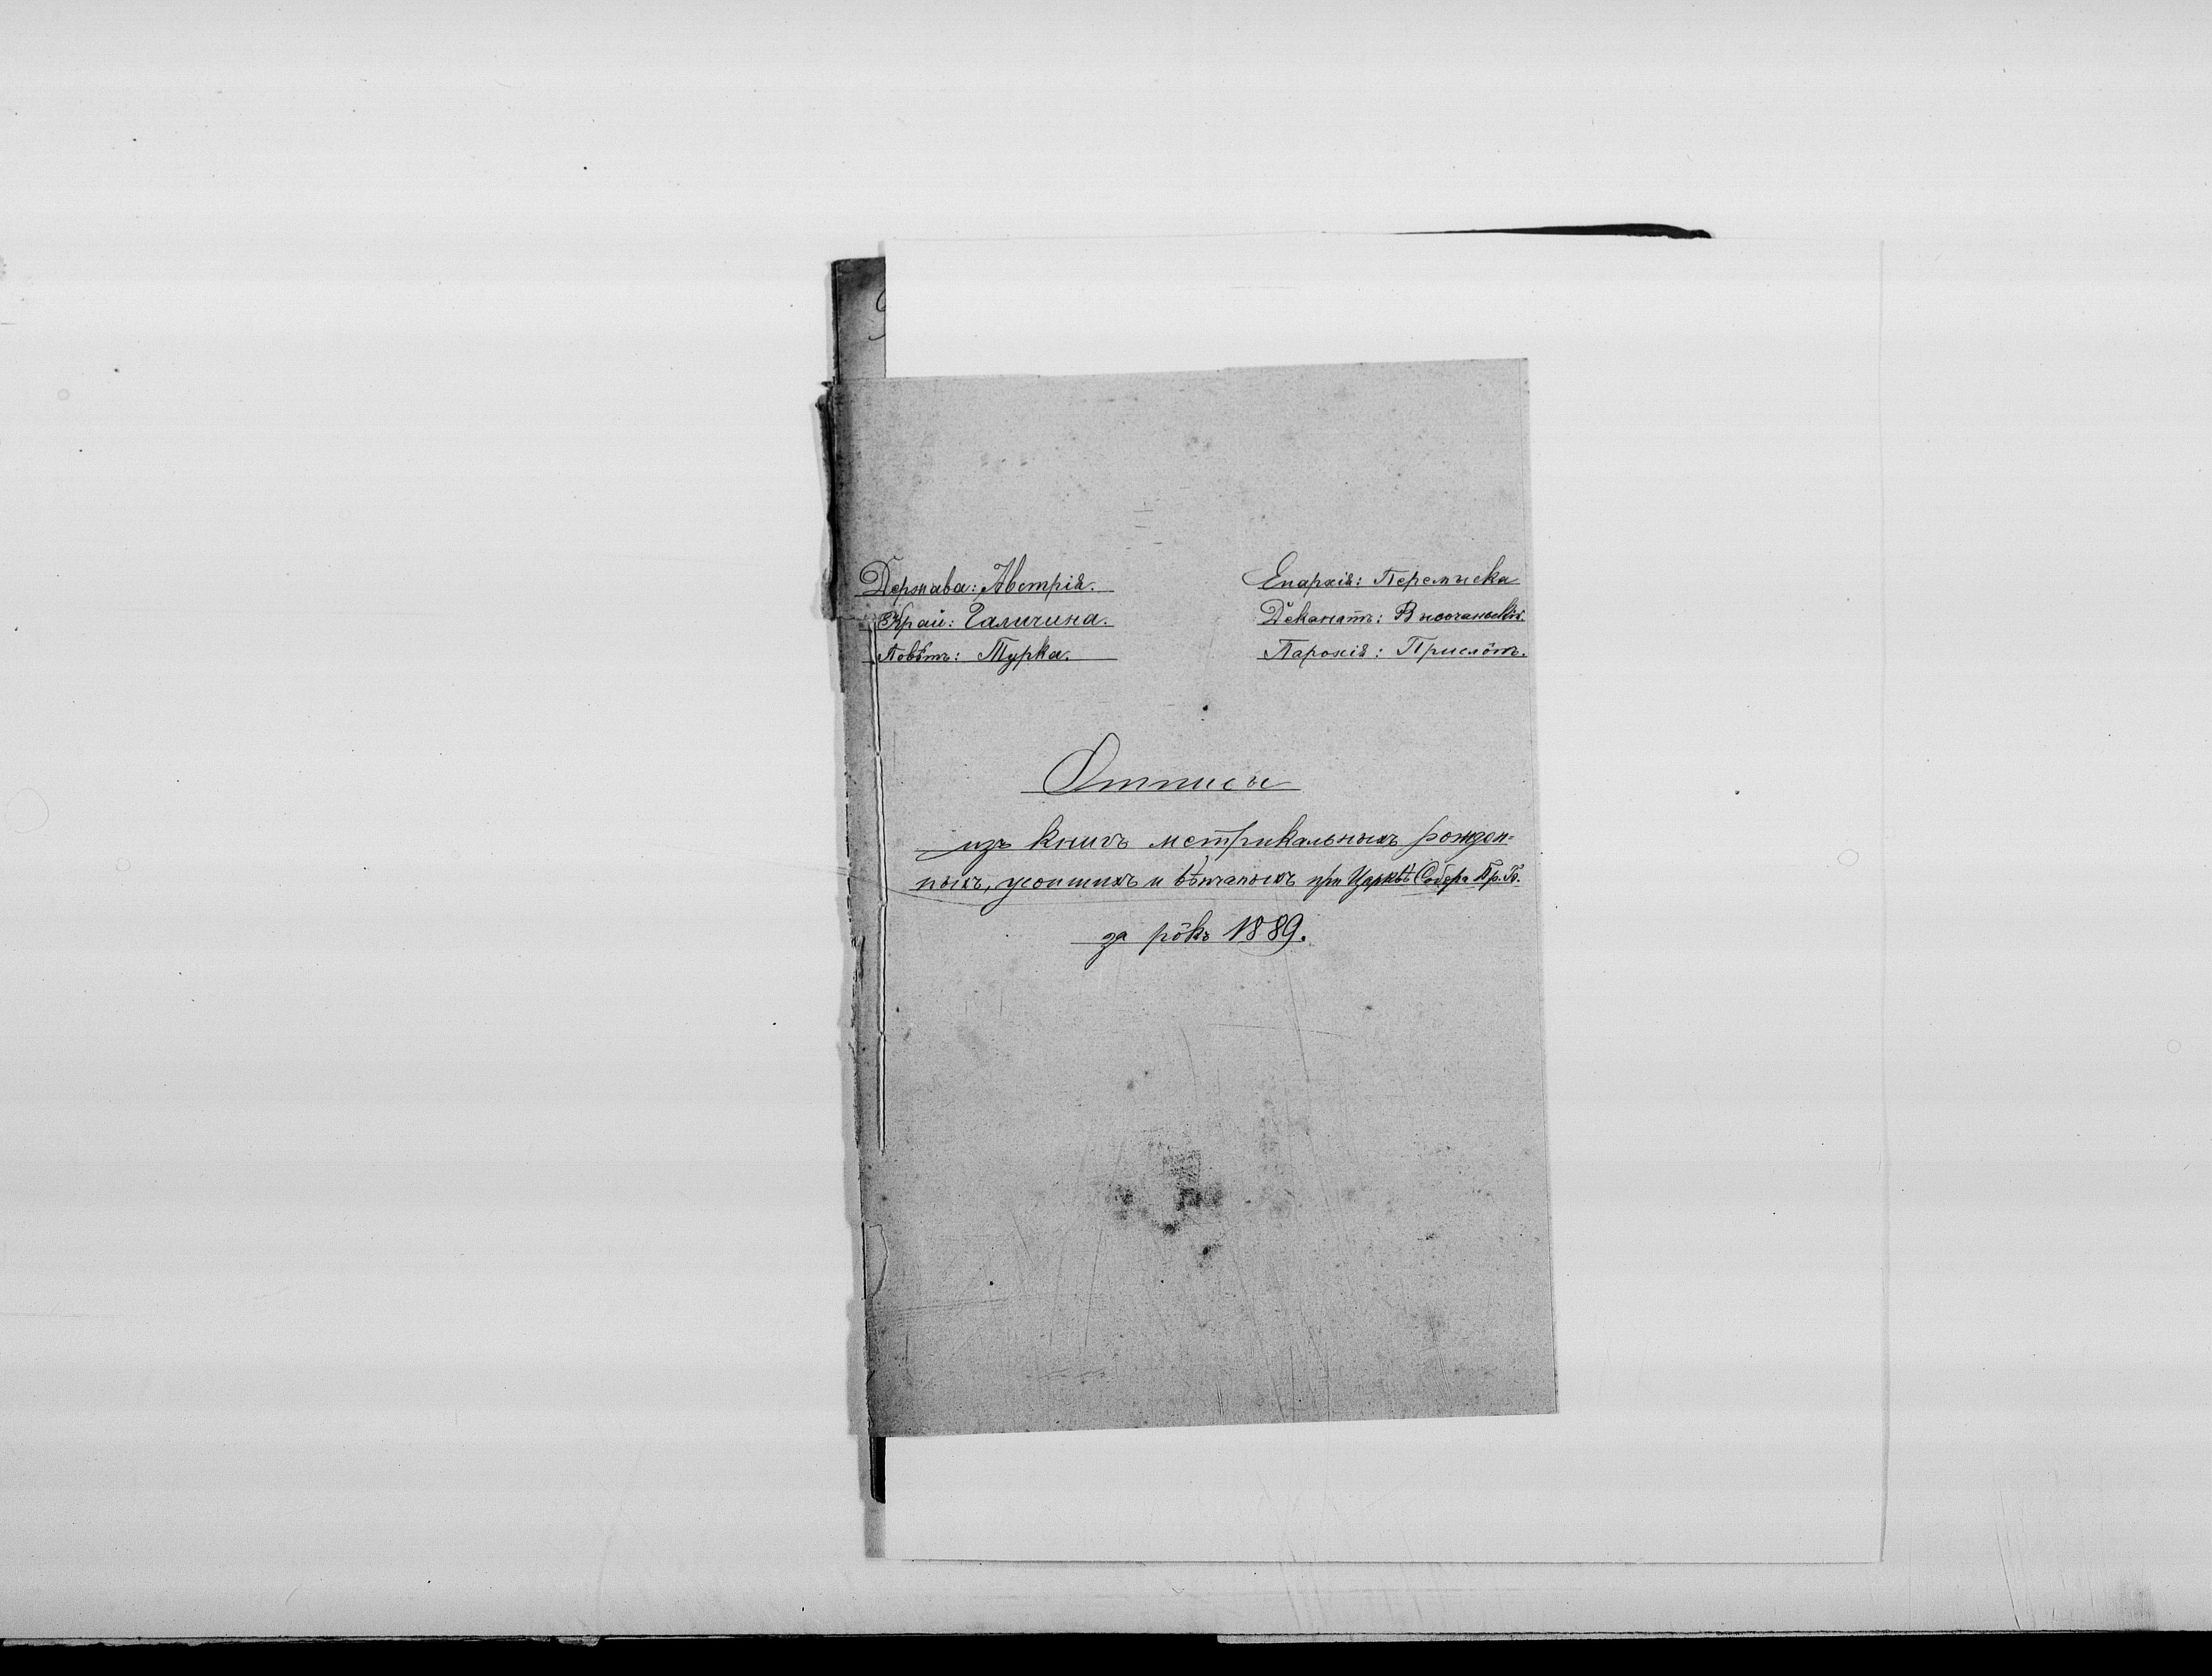 Держава: Австрія.
Край: Галичина.
Повѣтъ: Турка.
Епархія: Перемыска
Деканатъ: Высочанскій.
Парохія: Прислôпъ.
Отписы
изъ книгъ метрикальныхъ рожден-
ныхъ, усопшихъ и вѣнчаныхъ при Церквѣ Собора Пр. Б.
за рôкъ 1889.